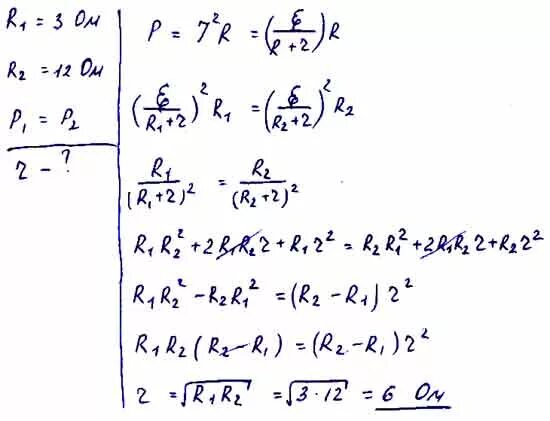 R₁ = 3 Ом
R₂ = 12 Ом
P₁ = P₂
r – ?
P = I²R = (ℰ/(R+r))R
(ℰ/(R₁+r))² R₁ = (ℰ/(R₂+r))² R₂
R₁/(R₁+r)² = R₂/(R₂+r)²
R₁R₂² + 2R₁R₂r + R₁r² = R₂R₁² + 2R₁R₂r + R₂r²
R₁R₂² – R₂R₁² = (R₂ – R₁) r²
R₁R₂(R₂ – R₁) = (R₂ – R₁) r²
r = √(R₁R₂) = √(3·12) = 6 Ом